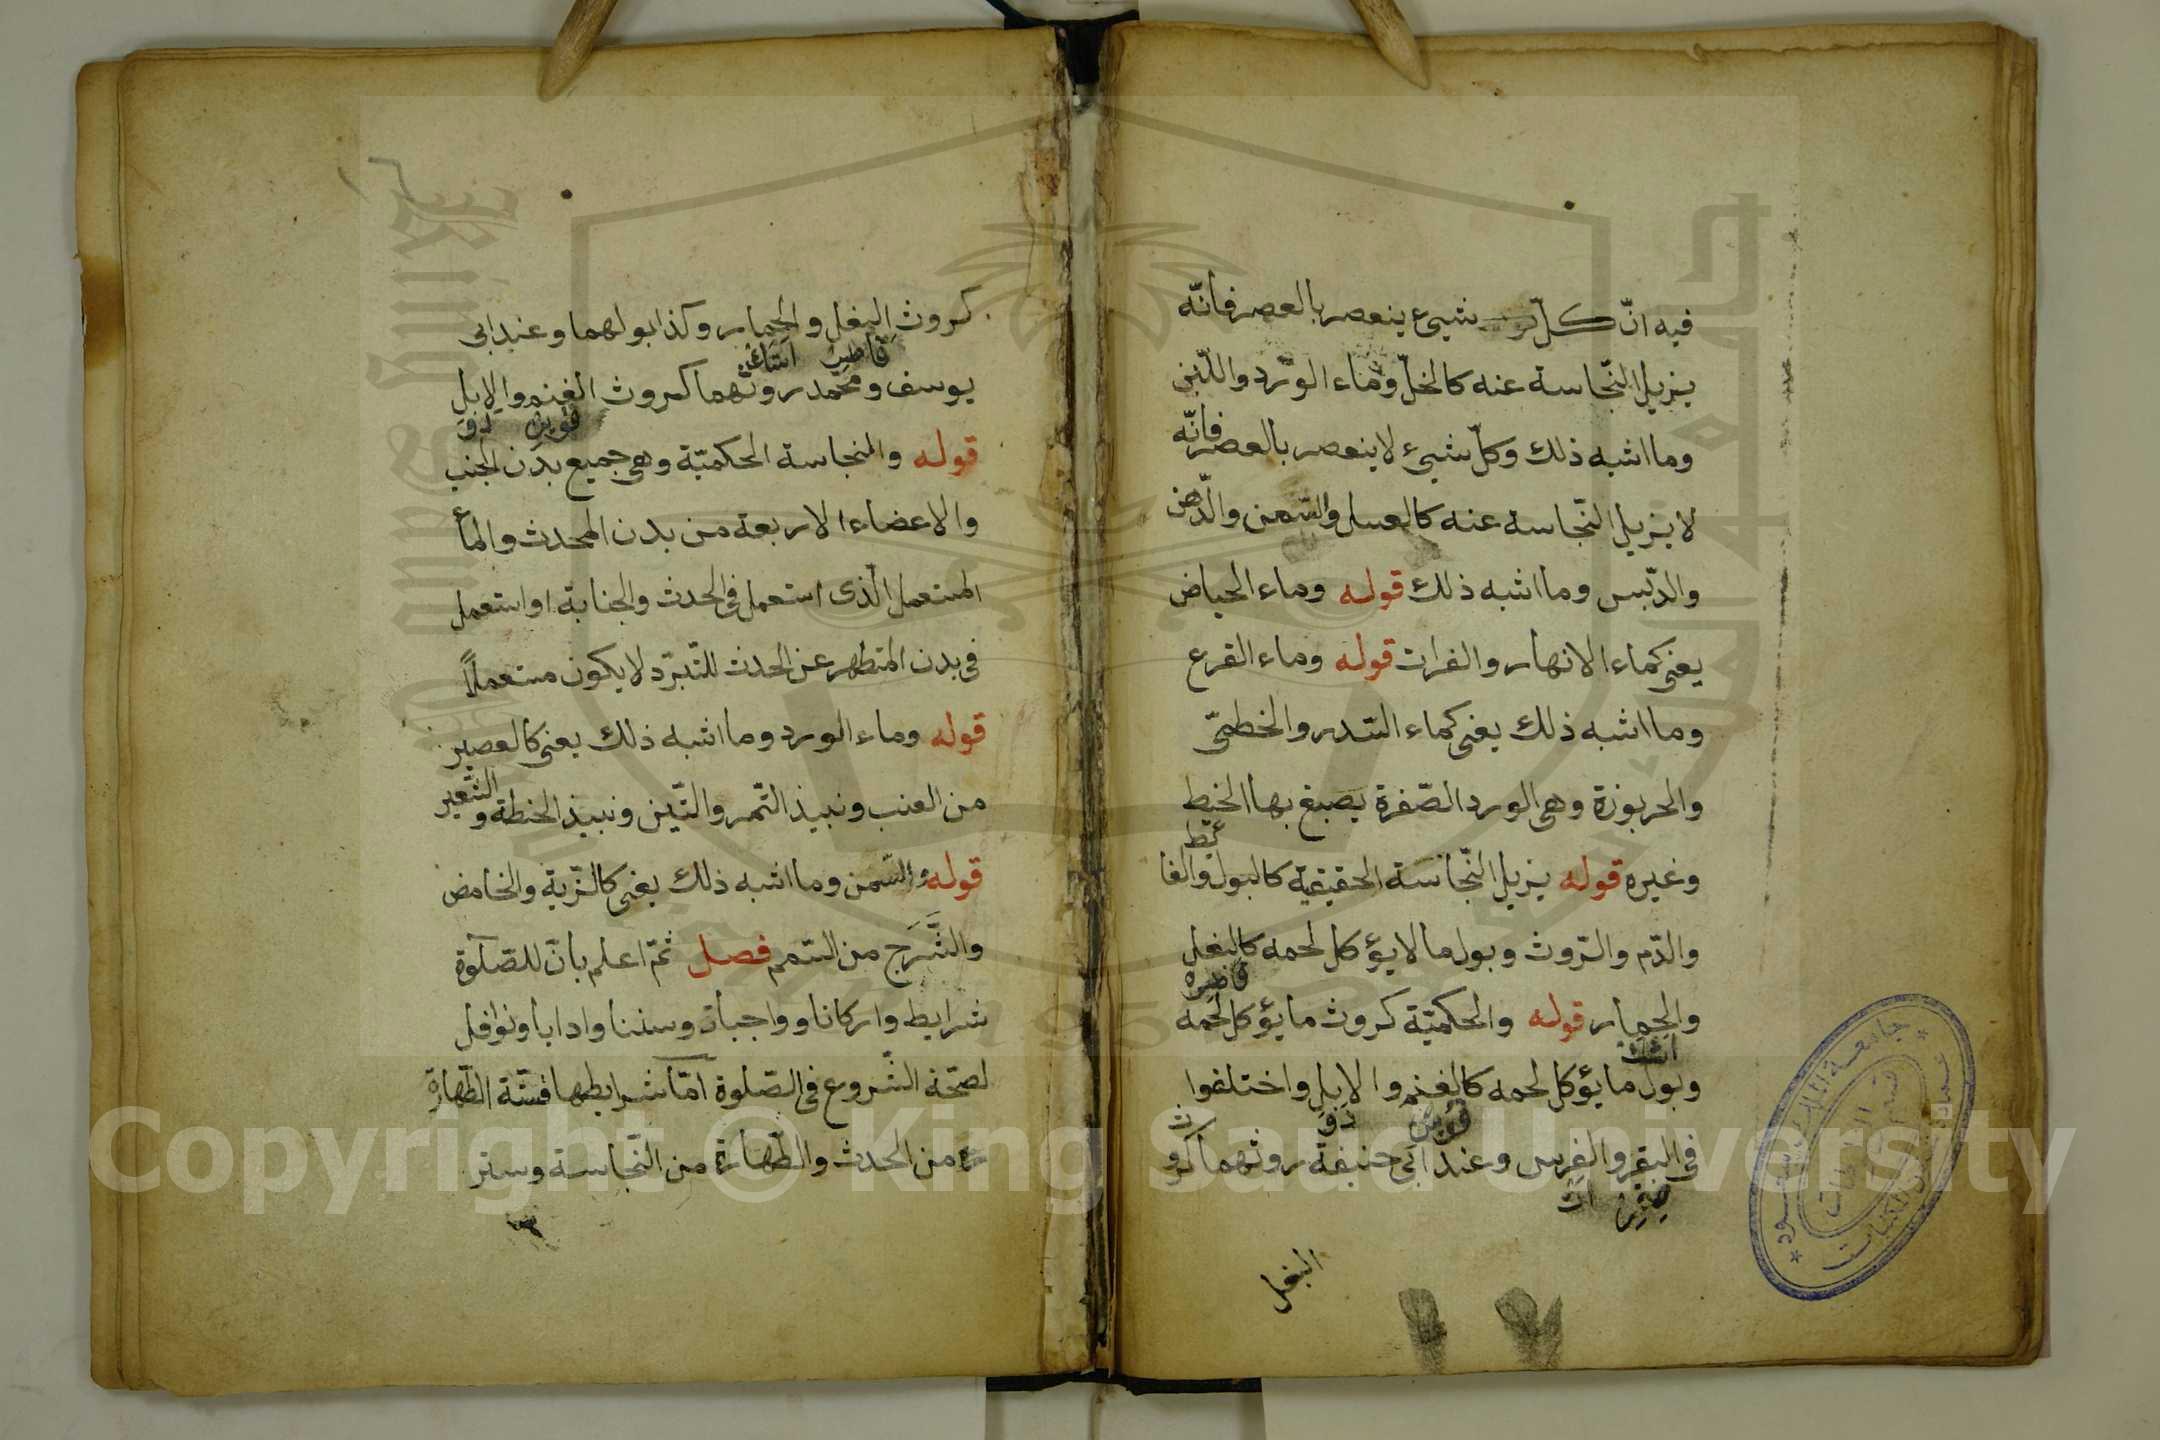 فيه انّ كلّ شيئ ينعصر بالعصر فانّه
يزيل النّجاسة عنه كالخلّ وماء الورد واللّبن
وما اشبه ذلك وكلّ شيئ لا ينعصر بالعصر فانّه
لا يزيل النّجاسة عنه كالعسل والسّمن والدّهن
والدّبس وما اشبه ذلك قوله وماء الحياض
يعنى كماء الانهار والفرات قوله وماء القرع
وما اشبه ذلك يعنى كماء السّدر والخطمىّ
والحربوزة وهى الورد الصّفرة يصبغ بها الخيط
وغيره قوله يزيل النّجاسة الحقيقية كالبول والغائط
والدّم والرّوث وبول ما لا يؤكل لحمه كالبغل
قاطر
والحمار قوله والحكميّة كروث ما يؤكل لحمه
اشك
وبول ما يؤكل لحمه كالغنم والابل واختلفوا
فى البقر والفرس وعند ابى حنيفة روثهما كروث
صغير ات
البغل
كروث البغل والحمار وكذا بولهما وعند ابى
قاطر
يوسف ومحمّد روثهما كروث الغنم والابل
قيون دوه
قوله والنجاسة الحكميّة وهى جميع بدن الجنب
والاعضاء الاربعة من بدن المحدث والمأ
المستعمل الّذى استعمل فى الحدث والجنابة او استعمل
فى بدن المتطهر عن الحدث للتّبرّد لا يكون مستعملاً
قوله وماء الورد وما اشبه ذلك يعنى كالعصير
من العنب ونبيذ التّمر والتّين ونبيذ الحنطة والشّعير
قوله والسّمن وما اشبه ذلك يعنى كالزّبدة والخامض
والشَّرَج من السّمسم فصل ثمّ اعلم بانّ للصّلوة
شرايط واركانا وواجبات وسننا وادابا ونوافل
لصحّة الشّروع فى الصّلوة امّا شرايطها فستّة الطّهارة
من الحدث والطّهارة من النّجاسة وستر
Copyright © King Saud University